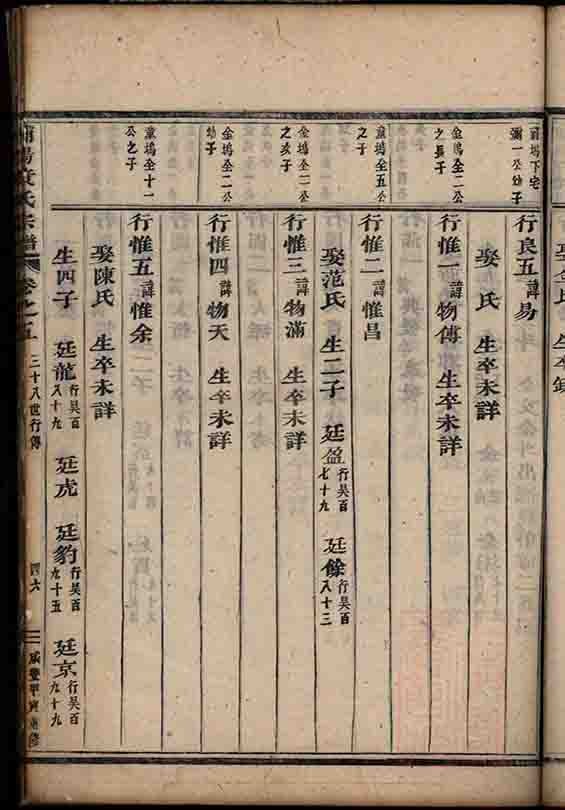 甫塲下宅
彌一公幼子
行良五諱易
娶　氏　生卒未詳
金塢全二公
之長子
行惟一諱物傳　生卒未詳
童塢全五公
之子
行惟二諱惟昌
娶范氏　生二子　廷盈行吴百七十九　廷餘行吴百八十三
金塢全二公
之次子
行惟三諱物滿　生卒未詳
金塢全二公
幼子
行惟四諱物天　生卒未詳
童塢全十一
公之子
行惟五諱惟余
娶陳氏　生卒未詳
生四子　廷龍行吴百八十九　廷虎　廷豹行吴百九十五　廷京行吴百九十九
氏宗譜　卷之五　三十八世行傳　四六　咸豐甲寅重修